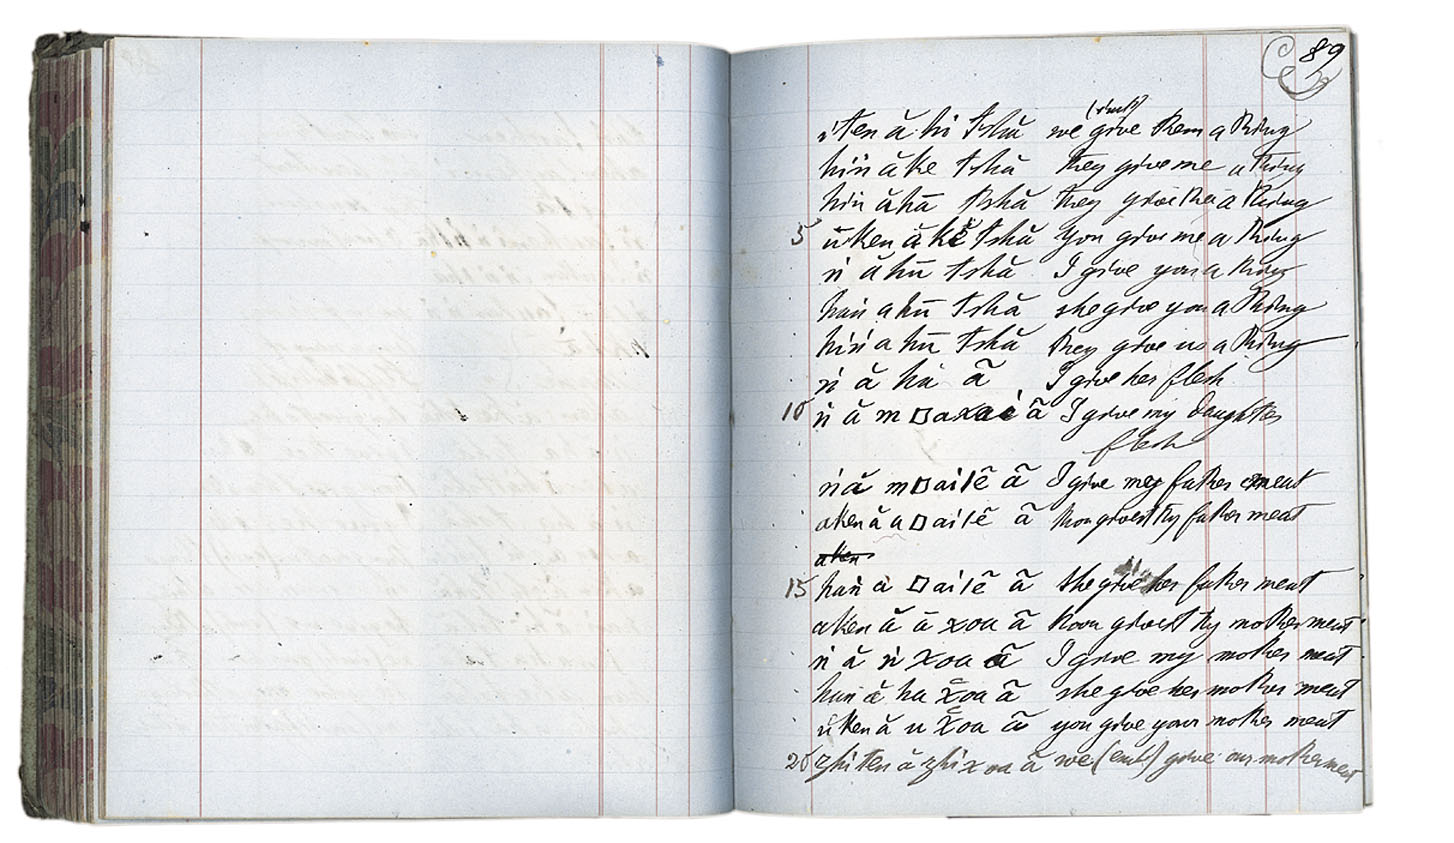 89
(emb)
i ten ă hi tshă we give them a thing
hiṅ ă ke tshă they give me a thing
hiṅ ă hā tshă they give thee a thing
5 ū ken ă kĕ tshă you give me a thing
ṅ ă hū tshă I give you a thing
haṅ a hū tshă she give you a thing
hiṅ a hū tshă they give us a thing
ṅ ă hā ã I give her flesh
10 ṅ ă m □axai ã I give my daughter
flesh
ṅ ă m □aitẽ ã I give my father meat
aken ă a □aitẽ ã thou givest thy father meat
aken
15 haṅ a □aitẽ ã she give her father meat
aken ă ā xoa ã thou givest thy mother meat
ṅ ă ṅ xoa ã I give my mother meat
haṅ ă ha xoa ã she give her mother meat
ū ken ă u xoa ã you give your mother meat
20 zhi ten ă zhi xoa ã we (emb) give our mother meat